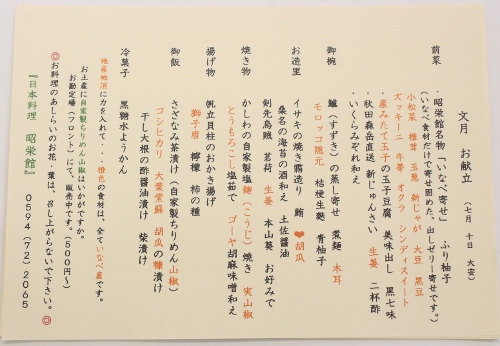 文月 お献立 (七月 十日 大安)
前菜
・昭栄館名物『いなべ寄せ』 ふり柚子
(いなべ食材だけで寄せ固めた、出しゼリー寄せです。)
小松菜 椎茸 玉葱 新じゃが 大豆 黒豆
ズッキーニ 牛蒡 オクラ シンディスイート
・産みたて玉子の玉子豆腐 美味出し 黒七味
・秋田森岳直送 新じゅんさい 生姜 二杯酢
・いくらみぞれ和え
御椀
鱸(すずき)の蒸し寄せ 煮麺 木耳
モロッコ隠元 桔梗生麩 青柚子
お造里
イサキの焼き霜造り 鮪 ❤胡瓜
桑名の海苔の酒和え 土佐醤油
剣先烏賊 茗荷 生姜 本山葵 お好みで
焼き物
かしわの自家製塩麹(こうじ)焼き 実山椒
とうもろこし塩茹で ゴーヤ胡麻味噌和え
揚げ物
帆立貝柱のおかき揚げ
獅子唐 檸檬 柿の種
御飯
さざなみ茶漬け(自家製ちりめん山椒)
コシヒカリ 大葉紫蘇 胡瓜の糠漬け
干し大根の酢醤油漬け 柴漬け
冷菓子
黒糖水ようかん
地産地消に力を入れて・・・・橙色の食材は、全ていなべ産です。
お土産に自家製ちりめん山椒はいかがですか。
お勘定場(フロント)にて、販売中です。(500円~)
◎お料理のあしらいのお花・葉は、召し上がらないで下さい。◎
『日本料理 昭栄館』 0594(72)2065